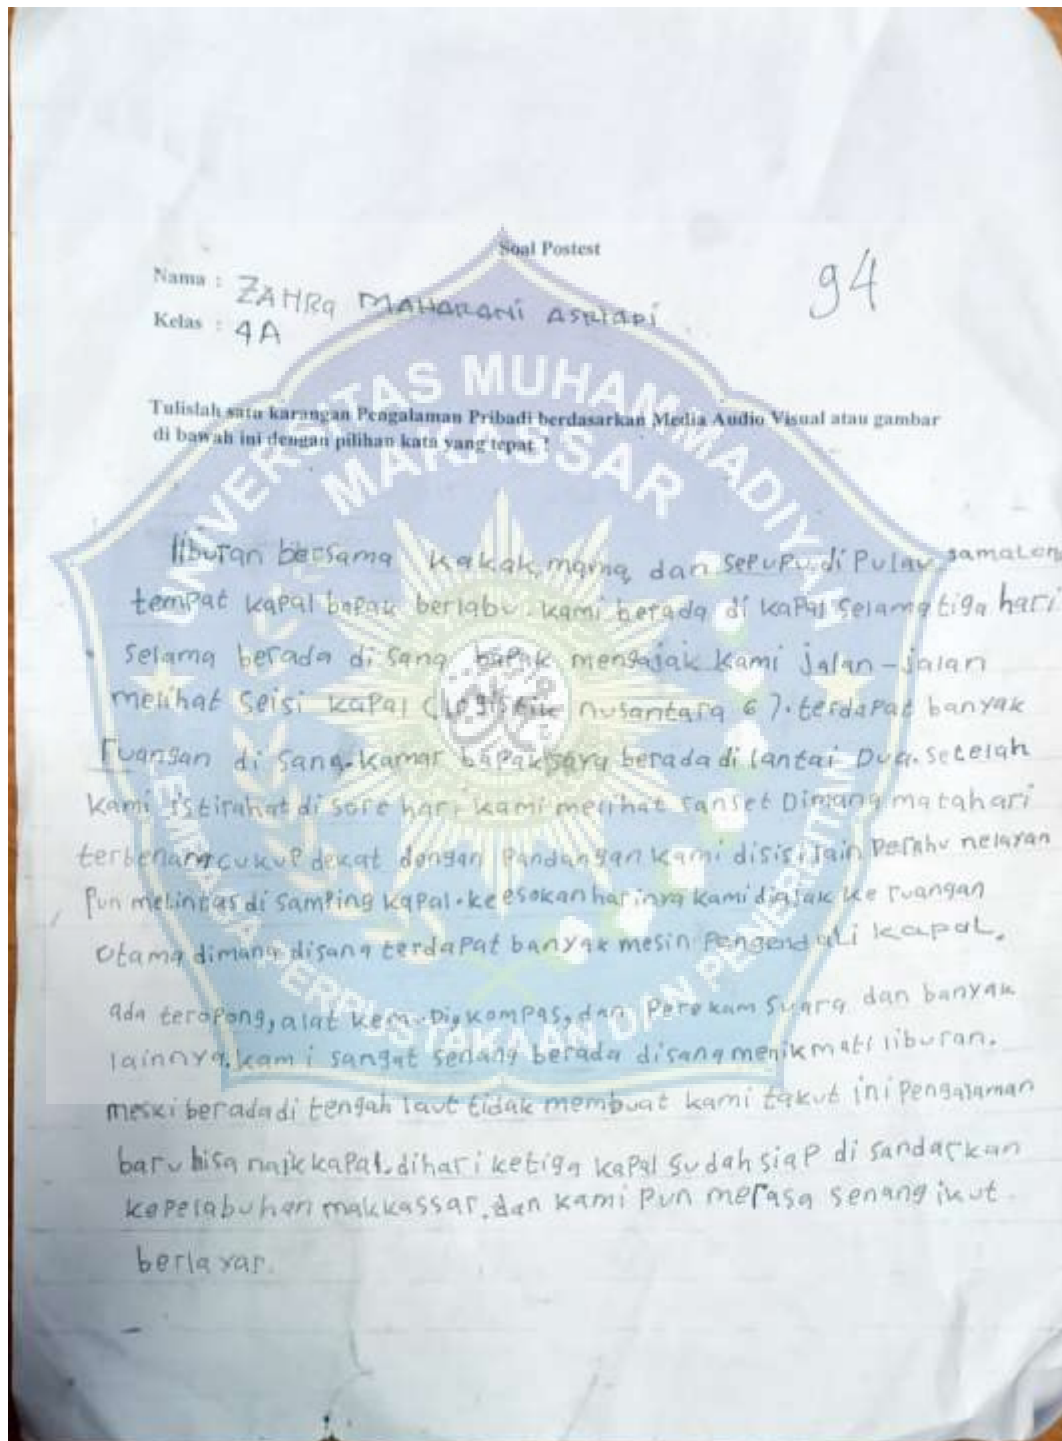 Soal Postest
94
Nama : ZAHRa MAHARANi ASRIADi
Kelas : 4A
Tulislah satu karangan Pengalaman Pribadi berdasarkan Media Audio Visual atau gambar
di bawah ini dengan pilihan kata yang tepat !
UNIVERSITAS MUHAMMADIYAH
MAKASSAR
LEMBAGA PERPUSTAKAAN DAN PENERBITAN
liburan bersama kakak, mama, dan sepupu. di Pulau samalon
tempat kapal bapak berlabu. kami berada di kapal selama tiga hari
selama berada di sana bapak mengajak kami jalan-jalan
melihat seisi kapal (logistik nusantara 6). terdapat banyak
ruangan di sana. kamar bapak saya berada di lantai Dua. setelah
kami istirahat di sore hari kami melihat sanset Dimana matahari
terbenam cukup dekat dengan Pandangan kami disisi lain perahu nelayan
Pun melintas di samping kapal. keesokan harinya kami diajak ke ruangan
utama dimana disana terdapat banyak mesin pengendali kapal.
ada teropong, alat kemudi, kompas, dan Perekam suara dan banyak
lainnya. kami sangat senang berada disana menikmati liburan.
meski berada di tengah laut tidak membuat kami takut ini pengalaman
baru bisa naik kapal. dihari ketiga kapal sudah siap di sandarkan
kepelabuhan makkassar. dan kami pun merasa senang ikut
berlayar.